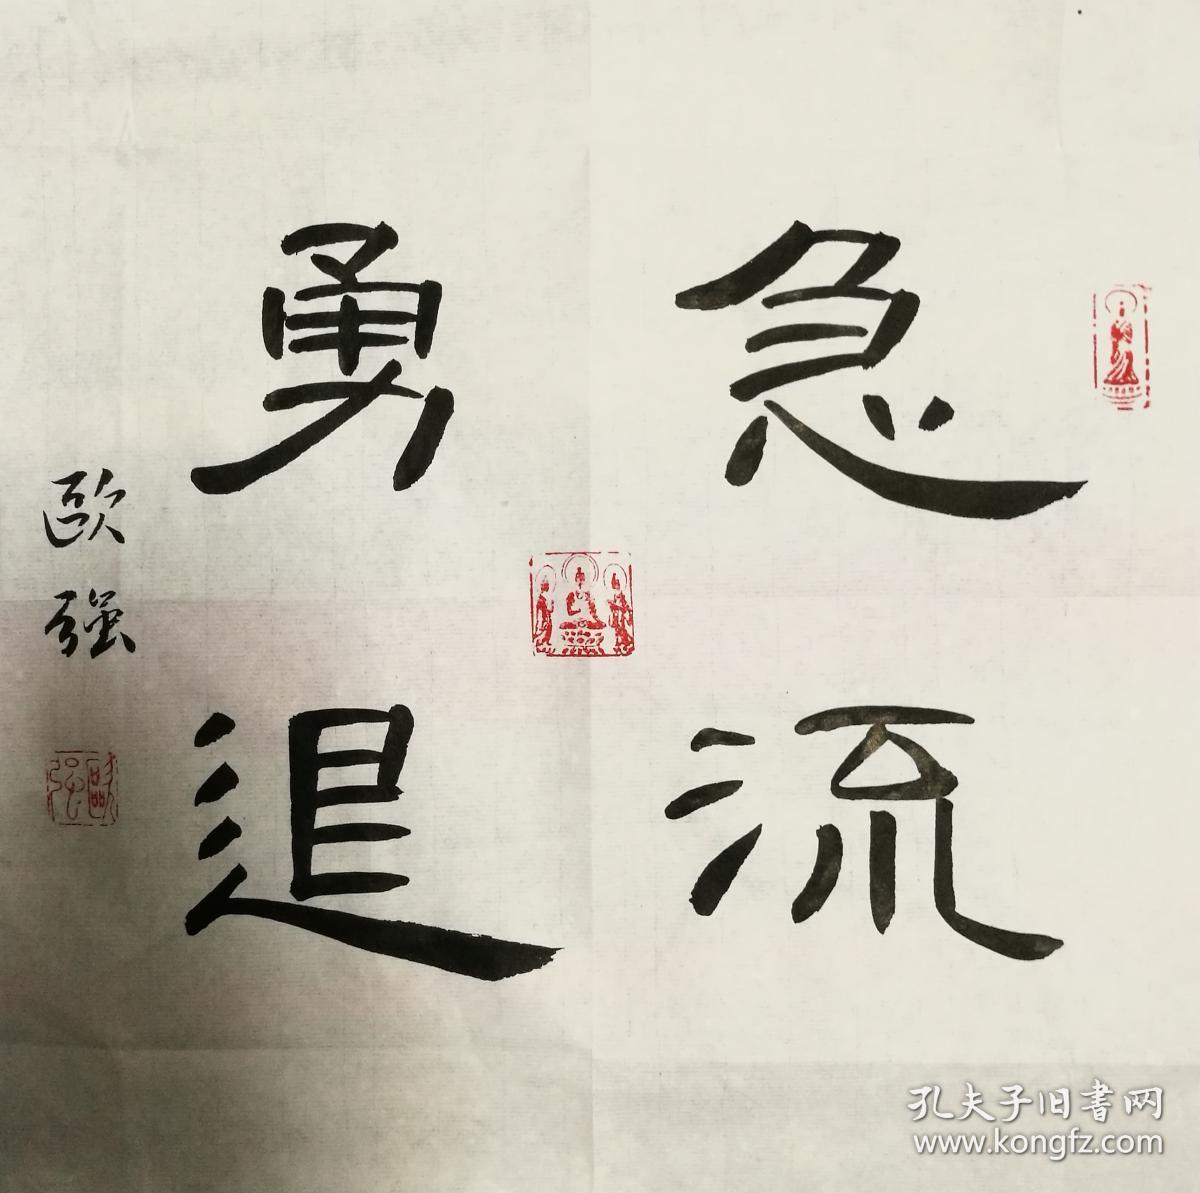 急流
勇退
歐强
歐强
孔夫子旧書网
www.kongfz.com